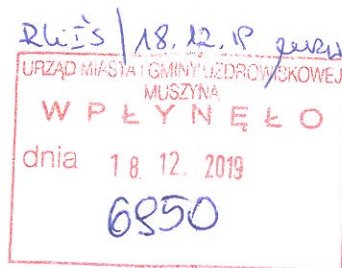 RLiŚ / 18.12.19
URZĄD MIASTA I GMINY UZDROWISKOWEJ
MUSZYNA
WPŁYNĘŁO
dnia 18. 12. 2019
6950